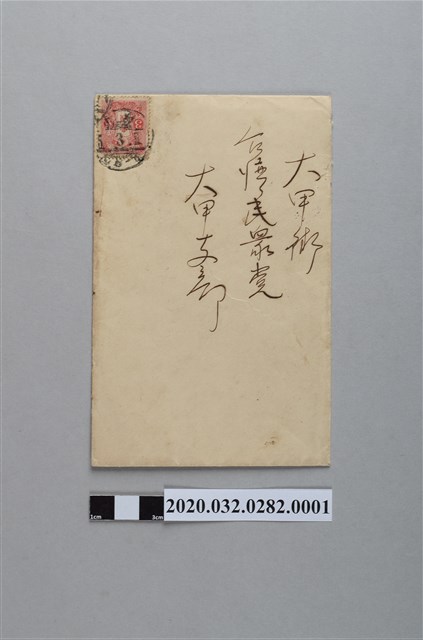 大甲街
台湾民衆党
大甲支部
1cm
3cm
2020.032.0282.0001